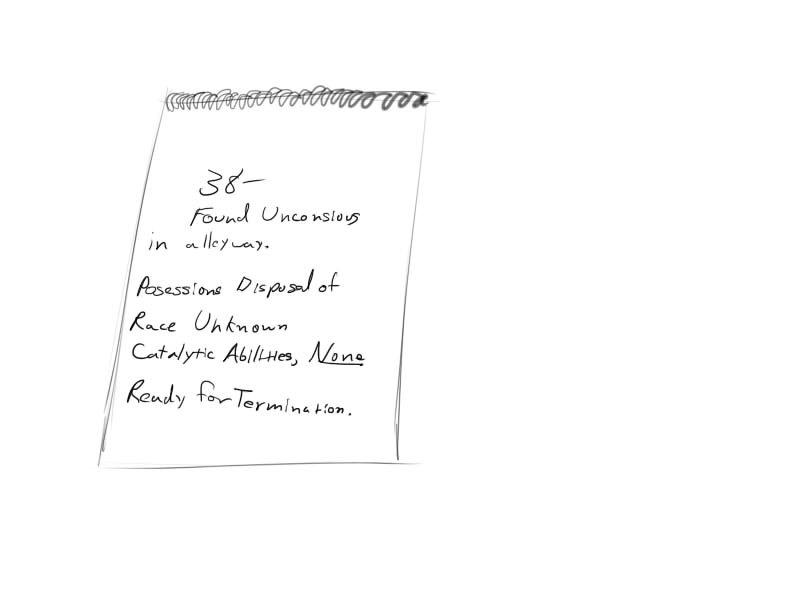 38-
Found Unconsious
in alleyway.
Posessions Disposal of
Race Unknown
Catalytic Abilities, None
Ready for Termination.